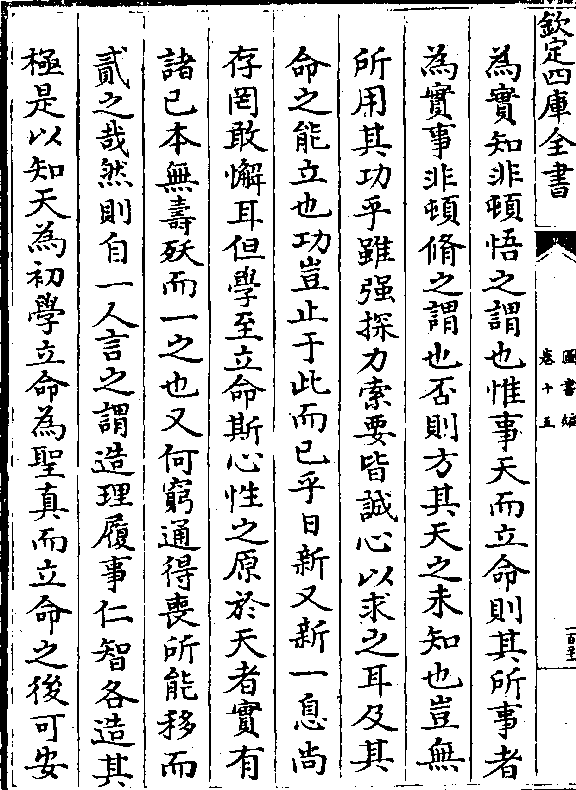 欽定四庫全書
圖書編
卷十五
為實知非頓悟之謂也惟事天而立命則其所事者
為實事非頓脩之謂也否則方其天之未知也豈無
所用其功乎雖强探力索要皆誠心以求之耳及其
命之能立也功豈止于此而已乎日新又新一息尚
存罔敢懈耳但學至立命斯心性之原於天者實有
諸已本無壽殀而一之也又何窮通得喪所能移而
貳之哉然則自一人言之謂造理履事仁智各造其
極是以知天為初學立命為聖真而立命之後可安